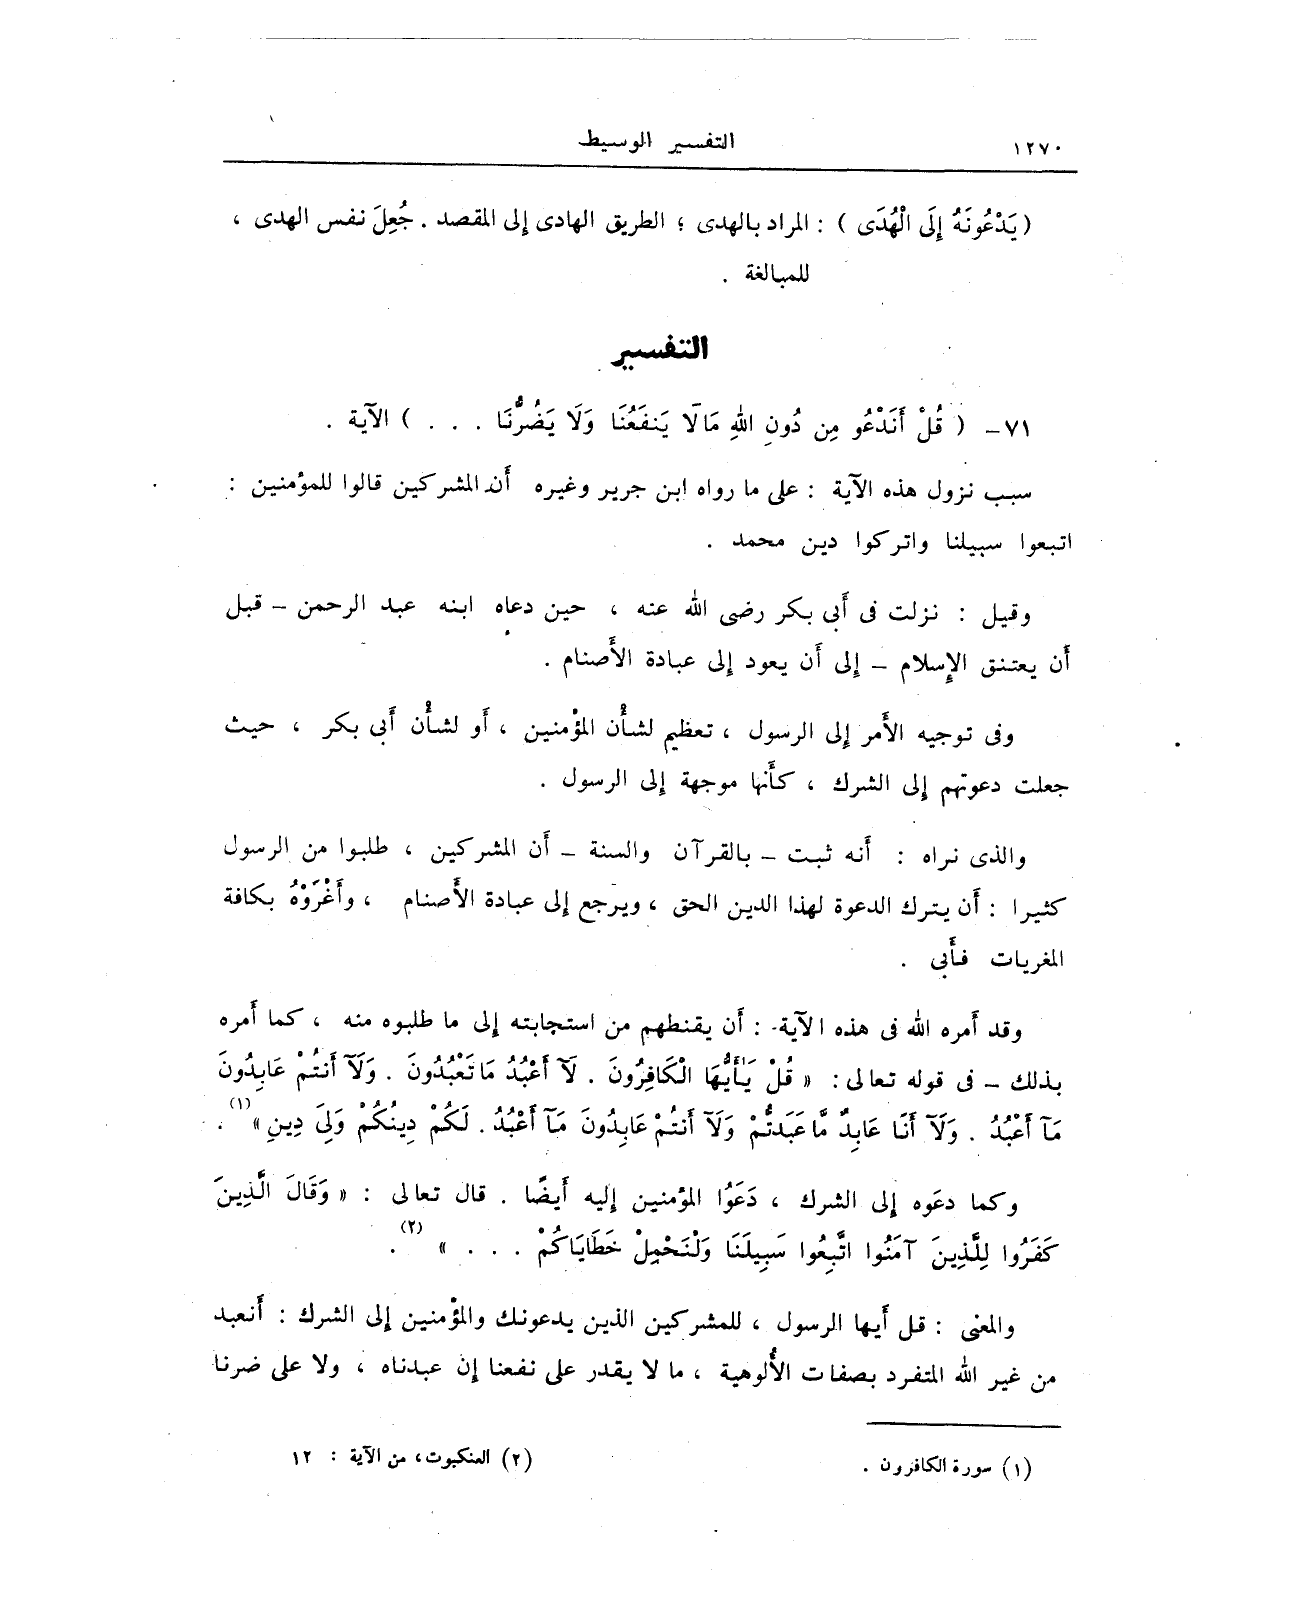 ١٢٧٠ التفسير الوسيط
( يَدْعُونَهُ إِلَى الْهُدَى ) : المراد بالهدى ؛ الطريق الهادى إلى المقصد . جُعِلَ نفس الهدى ،
للمبالغة .
التفسير
٧١ – ( قُلْ أَنَدْعُو مِن دُونِ اللهِ مَالَا يَنفَعُنَا وَلَا يَضُرُّنَا . . . ) الآية .
سبب نزول هذه الآية : على ما رواه ابن جرير وغيره أن المشركين قالوا للمؤمنين :
اتبعوا سبيلنا واتركوا دين محمد .
وقيل : نزلت فى أَبى بكر رضى الله عنه ، حين دعاه ابنه عبد الرحمن – قبل
أَن يعتنق الإِسلام – إِلى أَن يعود إِلى عبادة الأَصنام .
وفى توجيه الأَمر إِلى الرسول ، تعظيم لشأْن المؤْمنين ، أَو لشأْن أَبى بكر ، حيث
جعلت دعوتهم إِلى الشرك ، كأَنها موجهة إِلى الرسول .
والذى نراه : أَنه ثبت – بالقرآن والسنة – أَن المشركين ، طلبوا من الرسول
كثيرا : أَن يترك الدعوة لهذا الدين الحق ، ويرجع إِلى عبادة الأَصنام ، وأَغْرَوْهُ بكافة
المغريات فأَبى .
وقد أَمره الله فى هذه الآية : أَن يقنطهم من استجابته إِلى ما طلبوه منه ، كما أَمره
بذلك – فى قوله تعالى : « قُلْ يَٰأَيُّهَا الْكَافِرُونَ . لَآ أَعْبُدُ مَا تَعْبُدُونَ . وَلَآ أَنتُمْ عَابِدُونَ
مَآ أَعْبُدُ . وَلَآ أَنَا عَابِدٌ مَّا عَبَدتُّمْ وَلَآ أَنتُمْ عَابِدُونَ مَآ أَعْبُدُ . لَكُمْ دِينُكُمْ وَلِىَ دِينِ » (١) .
وكما دعَوه إِلى الشرك ، دَعَوُا المؤمنين إِليه أَيضًا . قال تعالى : « وَقَالَ الَّذِينَ
كَفَرُوا لِلَّذِينَ آمَنُوا اتَّبِعُوا سَبِيلَنَا وَلْنَحْمِلْ خَطَايَاكُمْ . . . » (٢) .
والمعنى : قل أَيها الرسول ، للمشركين الذين يدعونك والمؤْمنين إِلى الشرك : أَنعبد
من غير الله المتفرد بصفات الأُلوهية ، ما لا يقدر على نفعنا إِن عبدناه ، ولا على ضرنا
(١) سورة الكافرون . (٢) العنكبوت ، من الآية : ١٢